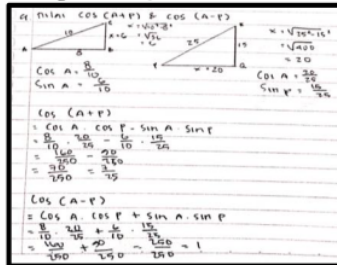 a. nilai cos (A+P) & cos (A-P)
10
x=6
8
A
B
C
x = √10²-8²
= √36
= 6
25
15
x = 20
P
Q
x = √25²-15²
= √400
= 20
Cos A = 8/10
Sin A = 6/10
Cos A = 20/25
Sin P = 15/25
Cos (A+P)
= Cos A . Cos P - Sin A . Sin P
= 8/10 . 20/25 - 6/10 . 15/25
= 160/250 - 90/250
= 70/250 = 7/25
Cos (A-P)
= Cos A . Cos P + Sin A . Sin P
= 8/10 . 20/25 + 6/10 . 15/25
= 160/250 + 90/250 = 250/250 = 1